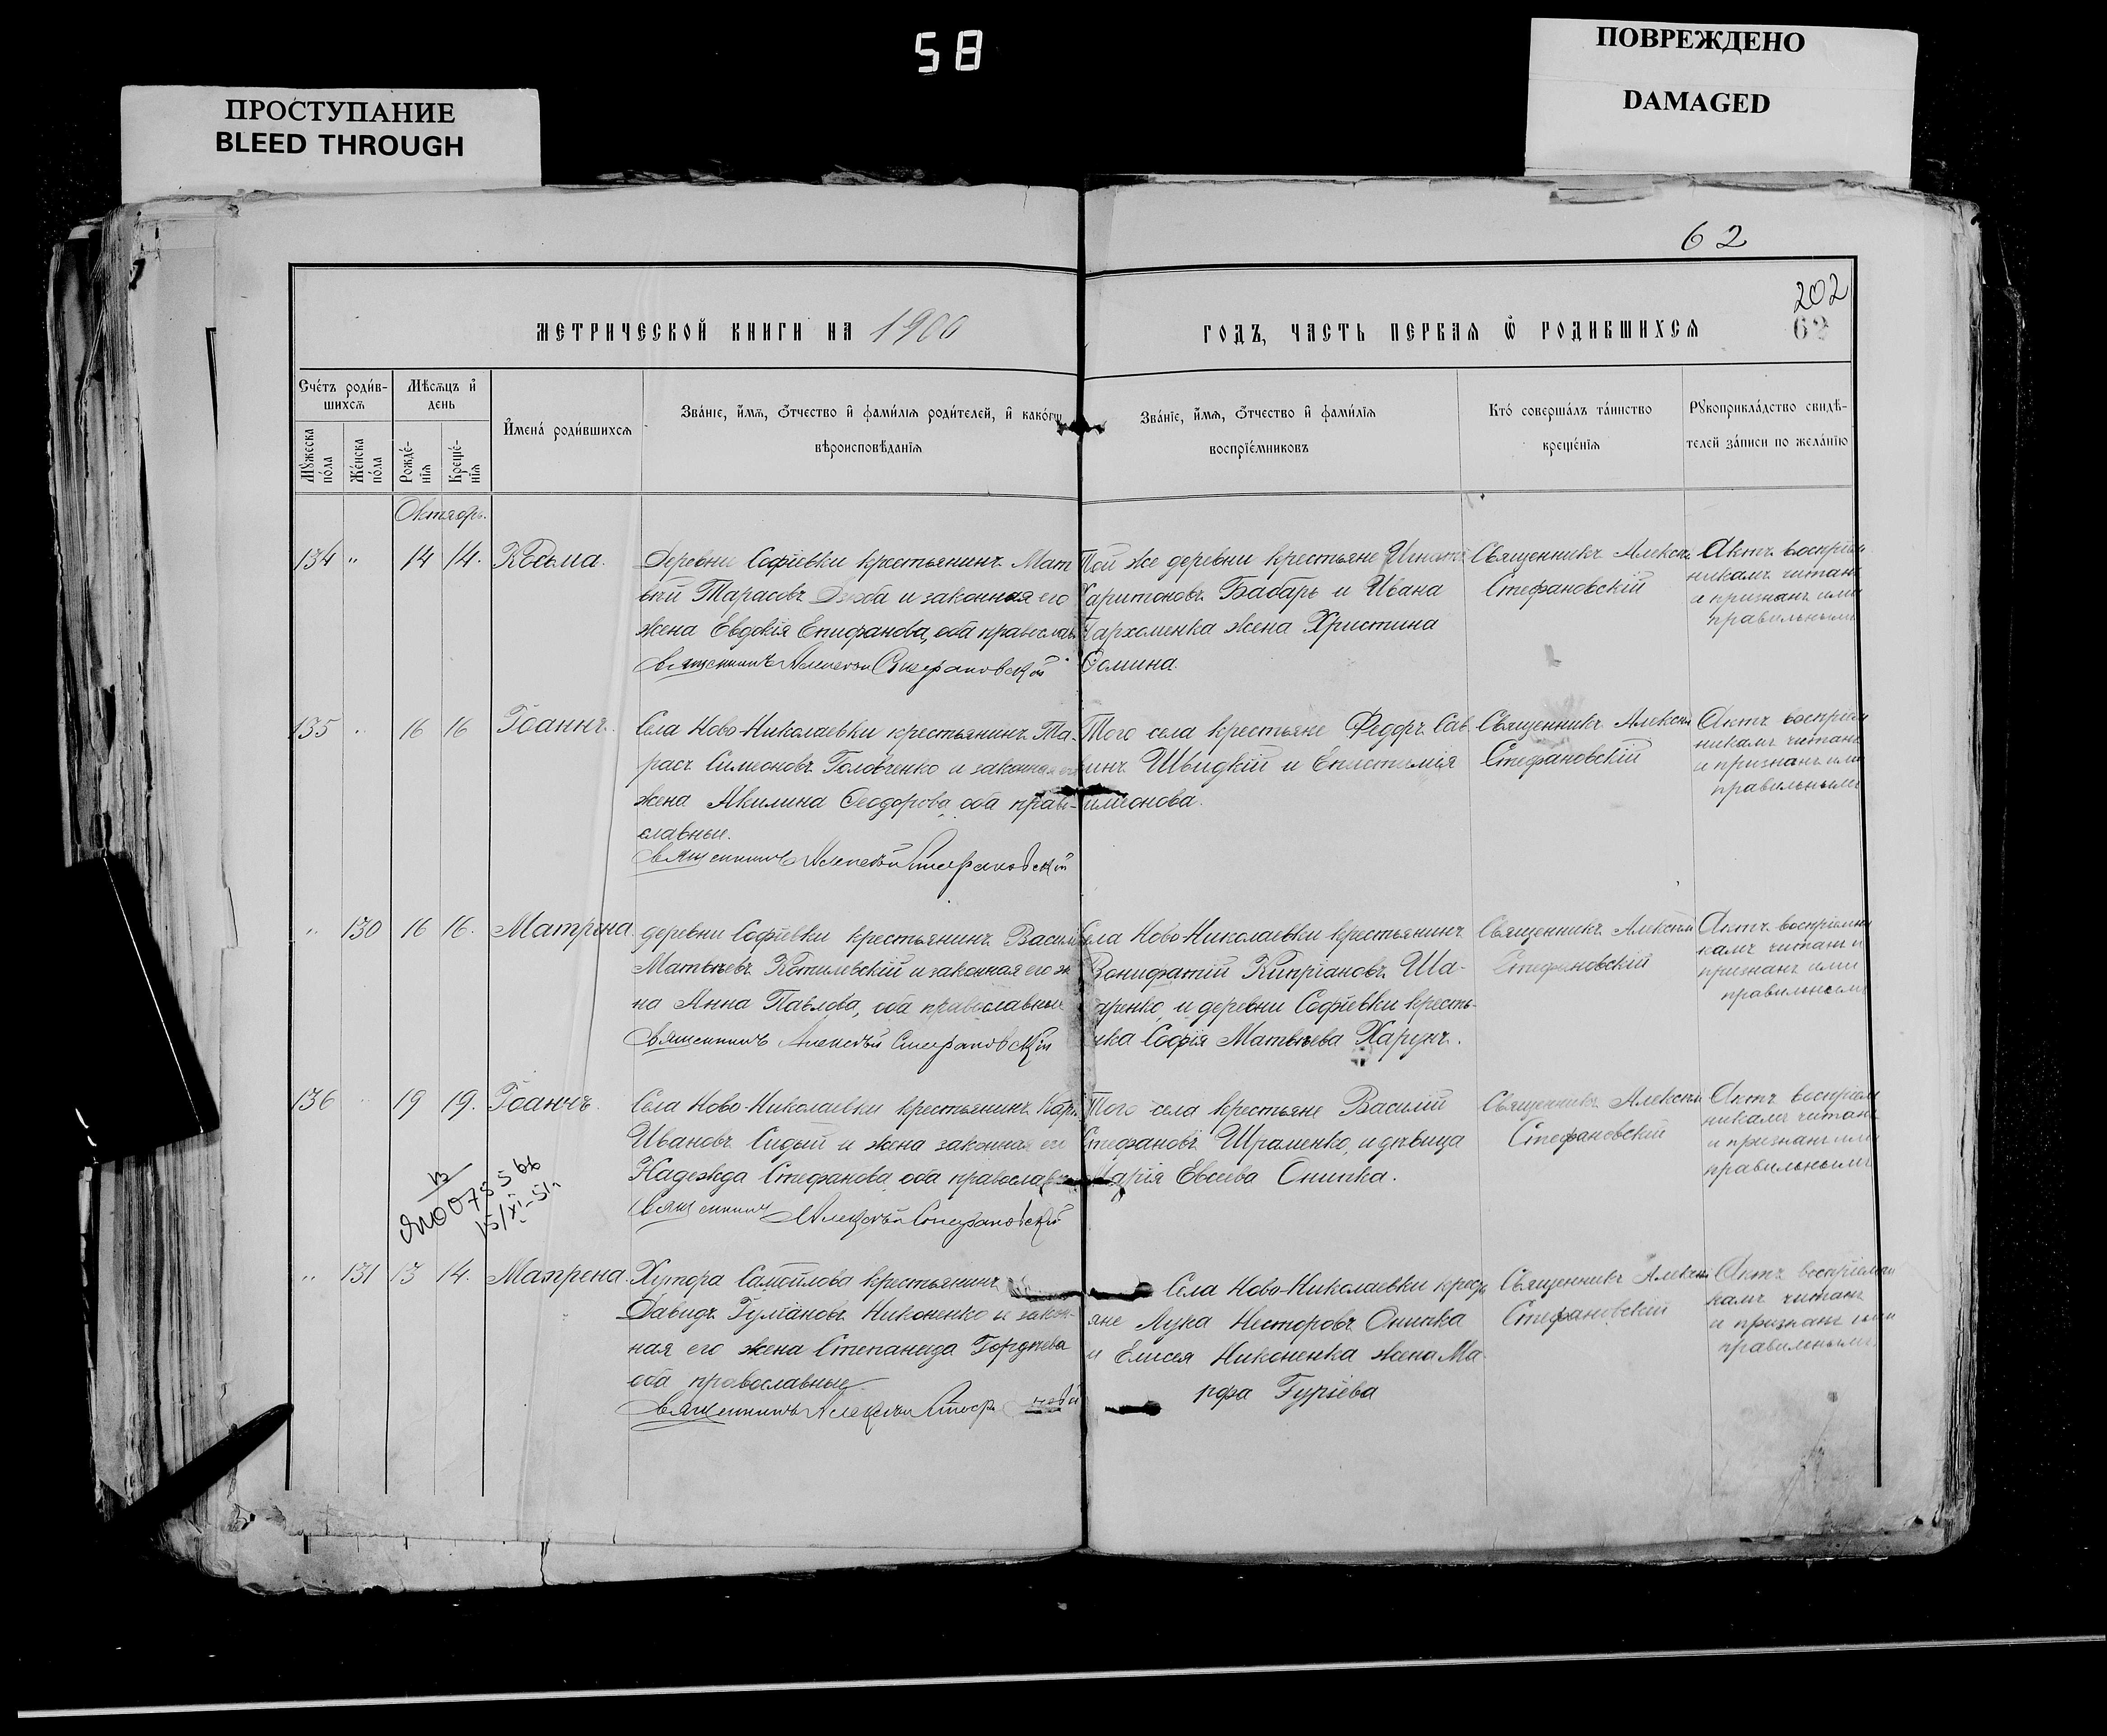 58
ПРОСТУПАНИЕ
BLEED THROUGH
ПОВРЕЖДЕНО
DAMAGED
62
202
62
МЕТРИЧЕСКОЙ КНИГИ НА 1900
ГОДЪ, ЧАСТЬ ПЕРВАЯ Ѡ РОДИВШИХСЯ
Счетъ родив-
шихся
Мѣсяцъ и
день
Мужеска
пола
Женска
пола
Рожде-
нія
Креще-
нія
Имена родившихся
Званіе, имя, отчество и фамилія родителей, и какогѡ
вѣроисповѣданія
Званіе, имя, отчество и фамилія
воспріемниковъ
Кто совершалъ таинство
крещенія
Рукоприкладство свидѣ-
телей записи по желанію
Октябрь.
134 " 14 14. Козьма.
Деревни Софіевки крестьянинъ Мат
вѣй Тарасовъ и законная его
жена Евдокія Епифанова, оба православ
Священникъ Алексѣй Стефановскій
Той же деревни крестьяне
Харитоновъ Бабарь и Ивана
Пархоменка жена Христина
Ѳомина.
Священникъ Алексѣй
Стефановскій
Актъ воспріем
никамъ читанъ
и признанъ ими
правильнымъ
135 " 16 16 Іоаннъ.
Села Ново-Николаевки крестьянинъ Та-
расъ Симеоновъ Головченко и законная его
жена Акилина Ѳеодорова, оба право-
славные.
Священникъ Алексѣй Стефановскій
Того села крестьяне Федоръ Сав
винъ Швидкій и Епистимія
Священникъ Алексѣй
Стефановскій
Актъ воспріем
никамъ читанъ
и признанъ ими
правильнымъ
" 130 16 16. Матрена.
деревни Софіевки крестьянинъ Васил
Матвѣевъ Котилевскій и законная его ж
на Анна Павлова, оба православные
Священникъ Алексѣй Стефановскій
Села Ново-Николаевки крестьянинъ
Вонифатій Кипріановъ Ша-
и деревни Софіевки кресть-
нка Софія Матвѣева Харунъ.
Священникъ Алексѣй
Стефановскій
Актъ воспріемни
камъ читанъ и
признанъ ими
правильнымъ
136 " 19 19. Іоаннъ.
Села Ново-Николаевки крестьянинъ
Ивановъ Сидый и жена законная его
Надежда Стефанова, оба православ
Священникъ Алексѣй Стефановскій
Того села крестьяне Василій
Стефановъ Шраменко, и дѣвица
Марія Евсеева Онипка.
Священникъ Алексѣй
Стефановскій
Актъ воспріем
никамъ читанъ
и признанъ ими
правильнымъ
15/XI-51г
" 131 13 14. Матрена.
Хутора Самойлова крестьянинъ
Давидъ Никоненко и закон-
ная его жена Степанида Гордѣева
оба православные
Священникъ Алексѣй
Села Ново-Николаевки кресть
яне Лука Несторовъ Онипка
и Елисея Никоненка жена Ма
рфа Гуріева
Священникъ Алексѣй
Стефановскій
Актъ воспріемни
камъ читанъ
и признанъ ими
правильнымъ